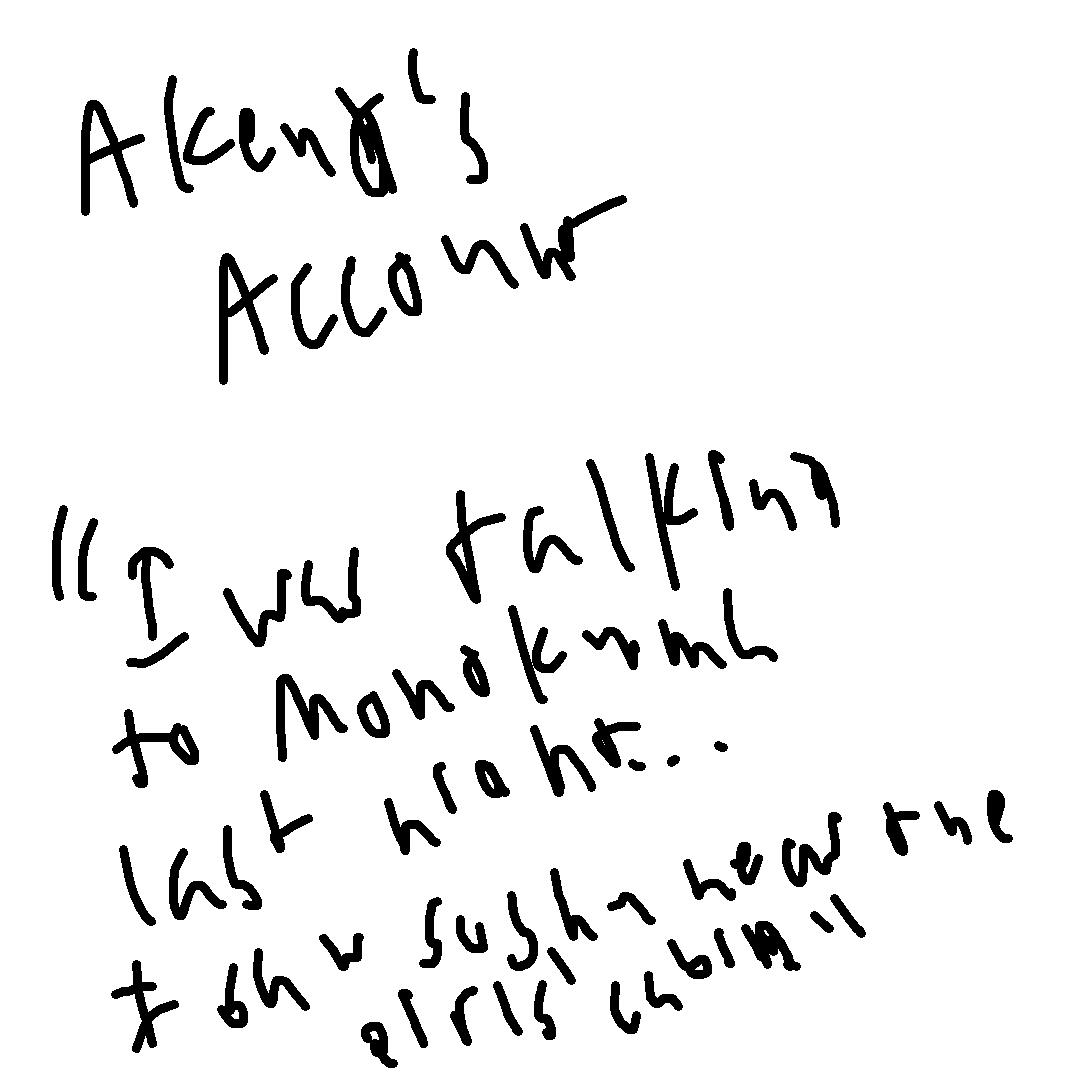 Akeno's
Account
"I was talking
to Monokuma
last night...
I saw sush near the
girls' cabin"